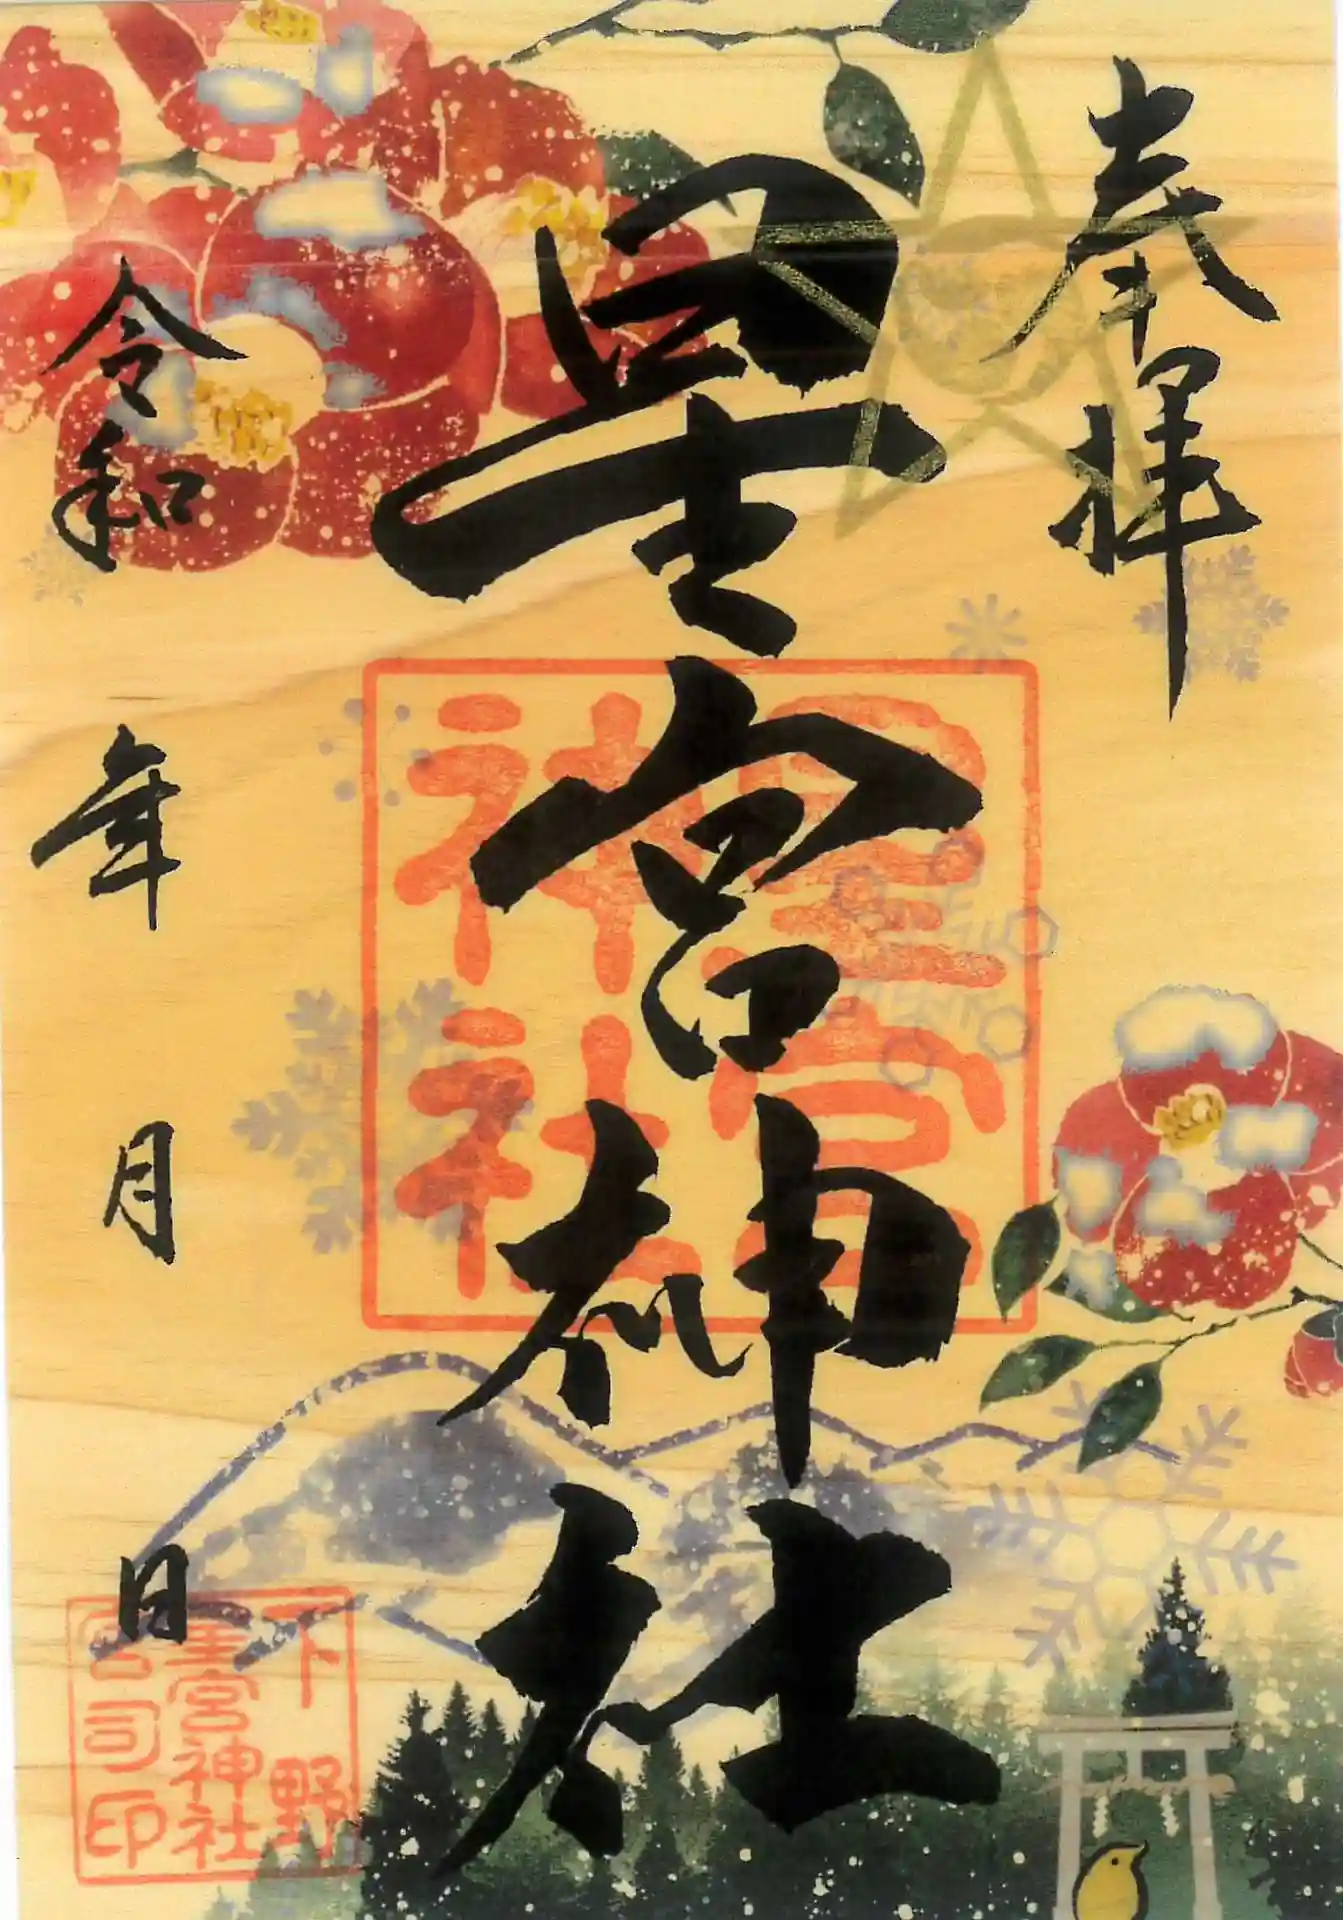 奉拝
星宮神社
星宮
神社
令和 年 月 日
下野
星宮神社
宮司印